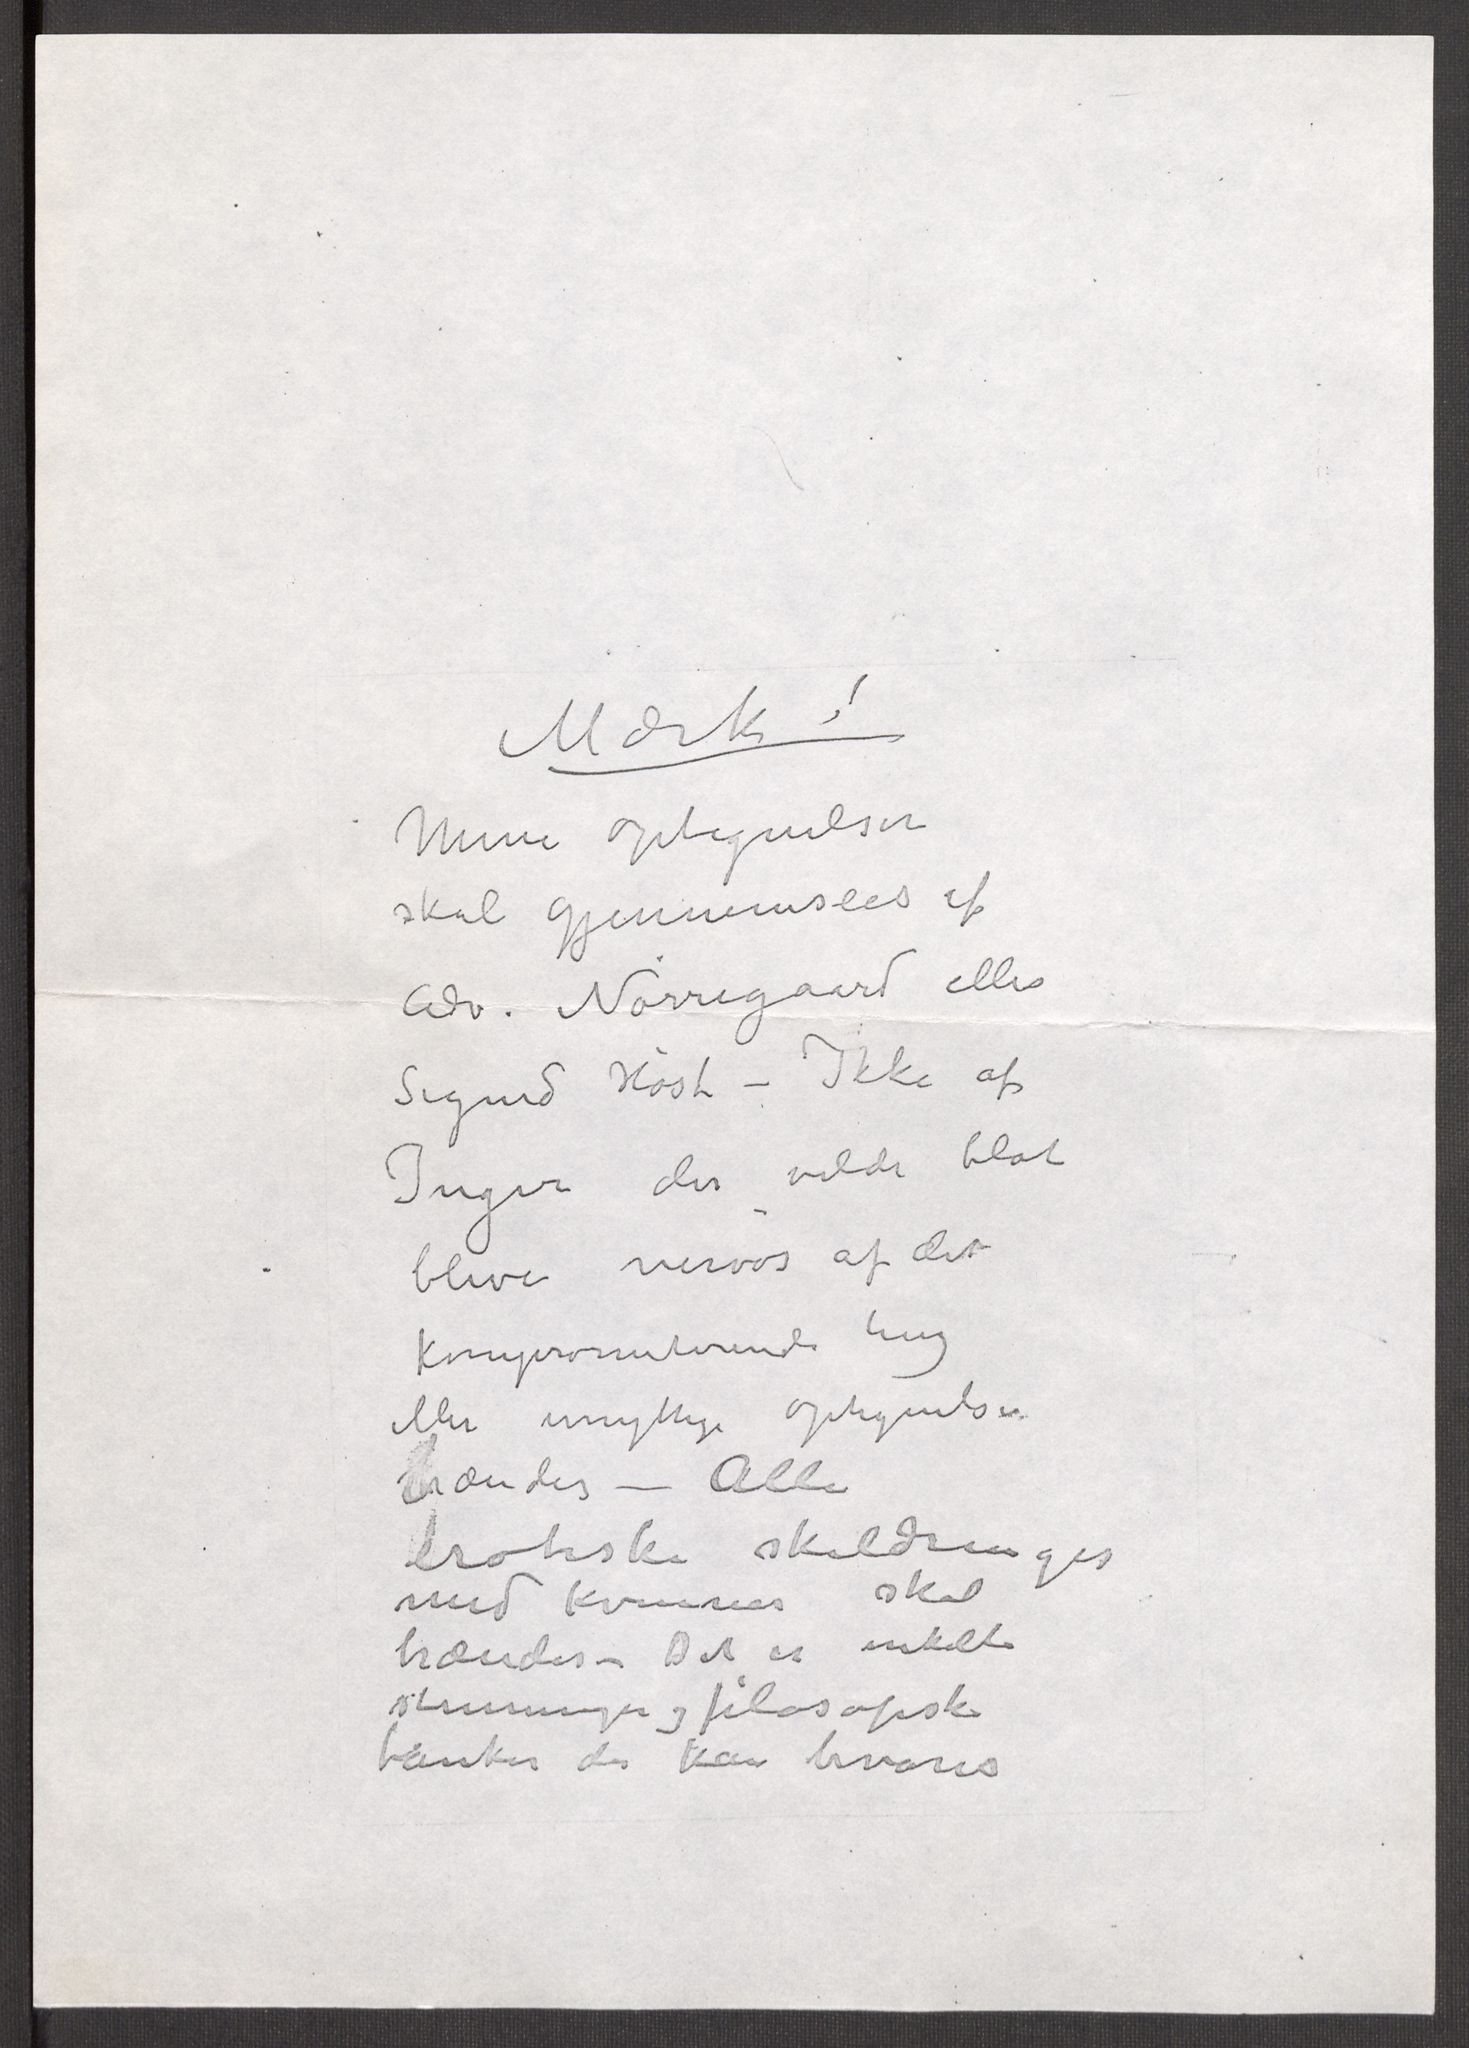 Mærk!
Mine optegnelser
skal gjennemsees af
Adv. Nørregaard eller
Sigurd Høst – Ikke af
Inger der vilde blot
blive nervøs af det
Kompromiterende ting
eller unyttige optegnelser
brændes – Alle
erotiske skildringer
med kvinner skal
brændes – Det er enkelte
stemninger og filosofiske
tanker der kan bevares